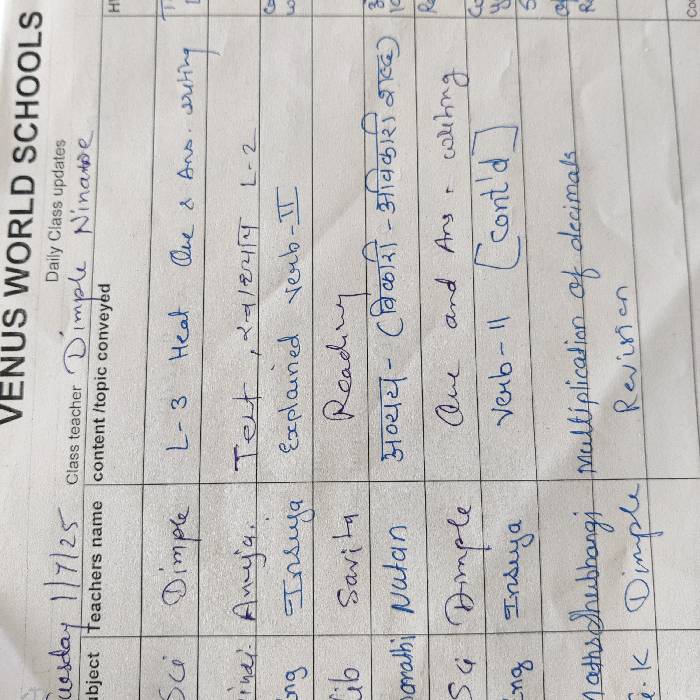 VENUS WORLD SCHOOLS
Daily Class updates
Class teacher Dimple Ninawe
uesday 1/7/25
ubject Teachers name content /topic conveyed
Sci Dimple L-3 Heat Que & Ans. writing
indi Anuja. Test, L-2
ng Insuya Explained verb-II
Lib Savita Reading
Nutan अव्यय - (विकारी - अविकारी शब्द)
Dimple Que and Ans - writing
ng Insuya verb-II [Cont'd]
Maths Shubhangi Multiplication of decimals
.K Dimple Revision